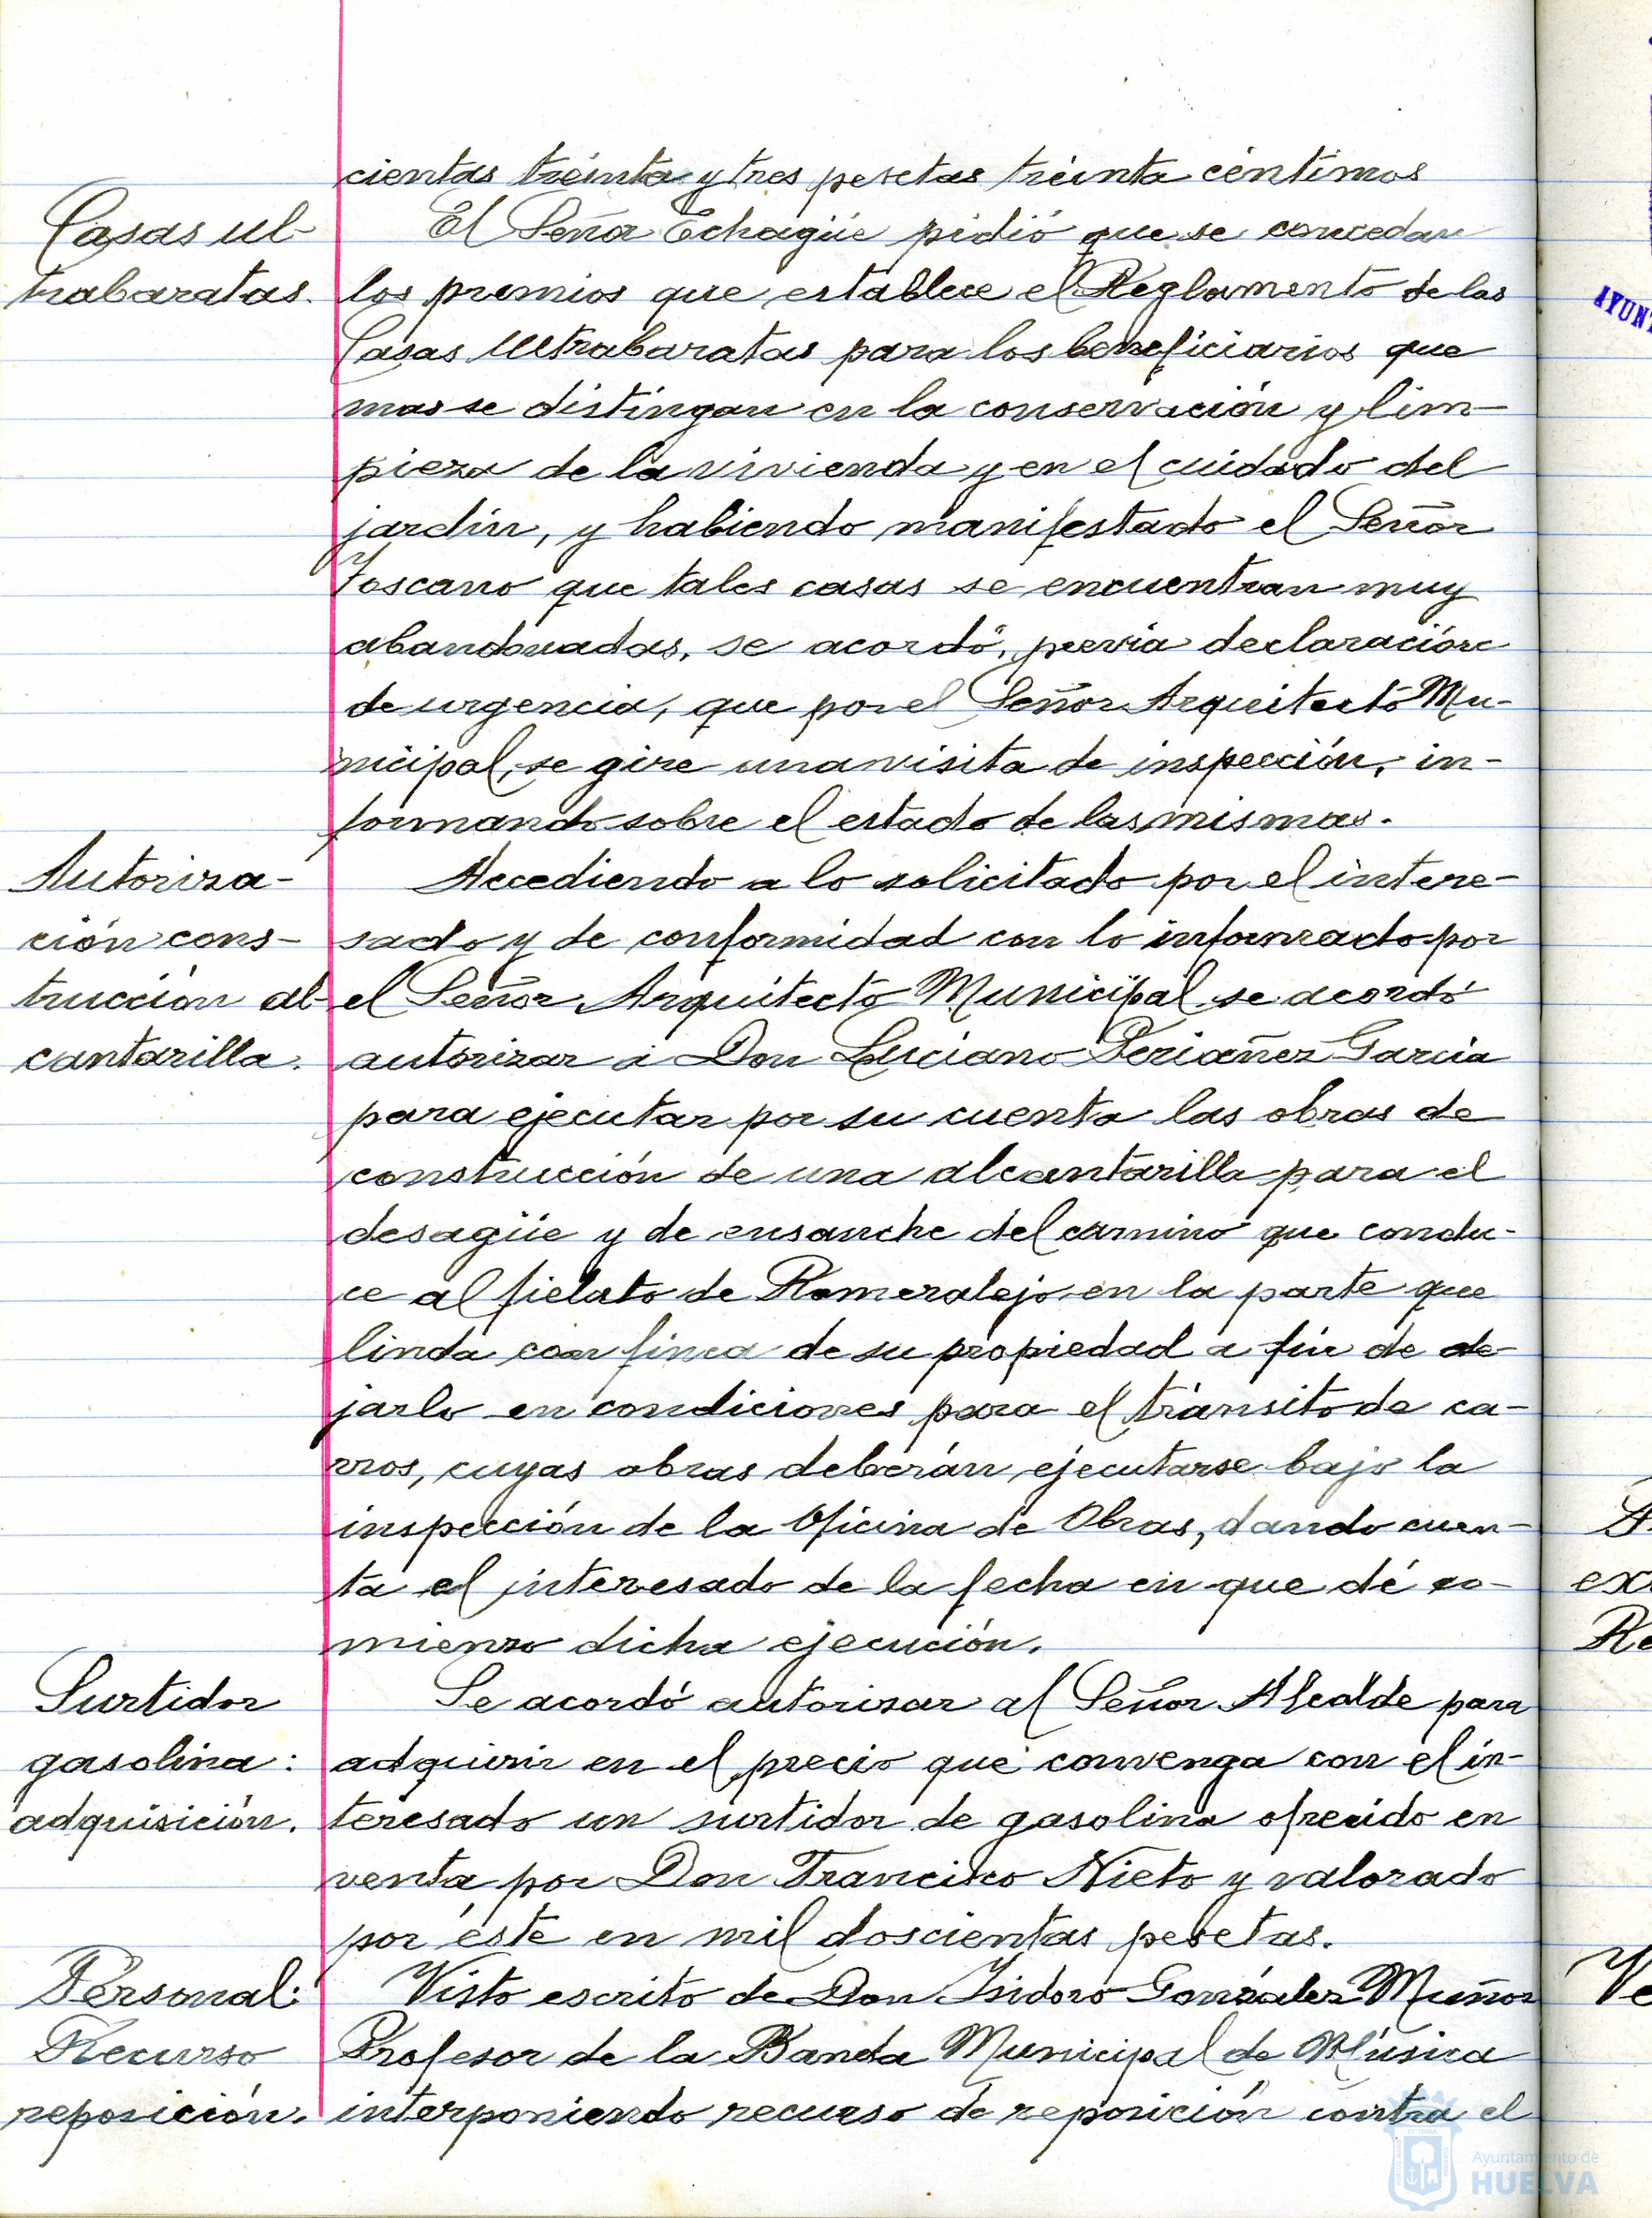 cientas treinta y tres pesetas treinta céntimos
Casas ul-
trabaratas.
El Señor Echagüe pidió que se concedan
los premios que establece el Reglamento de las
Casas Ultrabaratas para los beneficiarios que
mas se distingan en la conservación y lim-
pieza de la vivienda y en el cuidado del
jardín, y habiendo manifestado el Señor
Toscano que tales casas se encuentran muy
abandonadas, se acordó, previa declaración
de urgencia, que por el Señor Arquitecto Mu-
nicipal, se gire una visita de inspección, in-
formando sobre el estado de las mismas.
Autoriza-
ción cons-
trucción al-
cantarilla.
Accediendo a lo solicitado por el intere-
sado y de conformidad con lo informado por
el Señor Arquitecto Municipal se acordó
autorizar a Don Luciano Periañez García
para ejecutar por su cuenta las obras de
construcción de una alcantarilla para el
desagüe y de ensanche del camino que condu-
ce al fielato de Romeralejo en la parte que
linda con finca de su propiedad a fin de de-
jarlo en condiciones para el tránsito de ca-
rros, cuyas obras deberán ejecutarse bajo la
inspección de la Oficina de Obras, dando cuen-
ta el interesado de la fecha en que dé co-
mienzo dicha ejecución.
Surtidor
gasolina:
adquisición.
Se acordó autorizar al Señor Alcalde para
adquirir en el precio que convenga con el in-
teresado un surtidor de gasolina ofrecido en
venta por Don Francisco Nieto y valorado
por éste en mil doscientas pesetas.
Personal:
Recurso
reposición.
Visto escrito de Don Isidoro González Muñoz
Profesor de la Banda Municipal de Música
interponiendo recurso de reposición contra el
AYUN
ex
Re
Ve
Ayuntamiento de
HUELVA